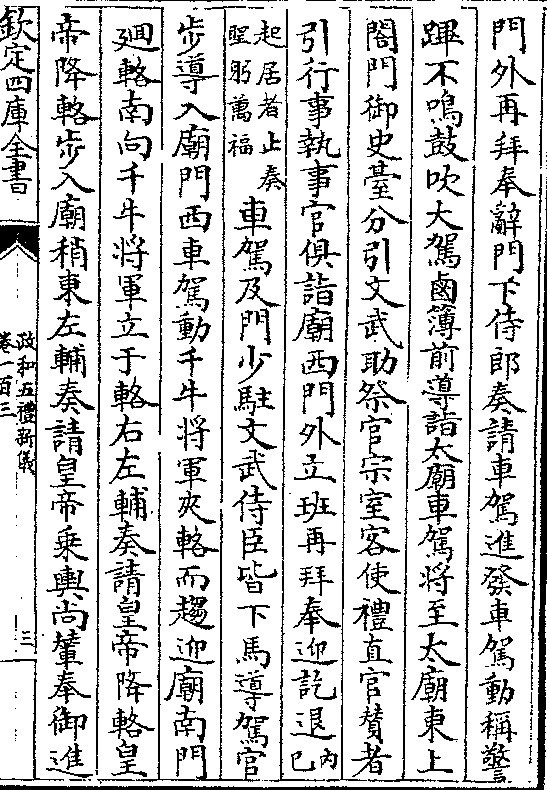 門外再拜奉辭門下侍郎奏請車駕進發車駕動稱警
蹕不鳴鼓吹大駕鹵簿前導詣太廟車駕將至太廟東上
閤門御史臺分引文武助祭官宗室客使禮直官賛者
引行事執事官俱詣廟西門外立班再拜奉迎訖退内已
起居者止奏聖躬萬福車駕及門少駐文武侍臣皆下馬導駕官
步導入廟門西車駕動千牛將軍夾輅而趨迎廟南門
廻輅南向千牛將軍立于輅右左輔奏請皇帝降輅皇
帝降輅步入廟稍東左輔奏請皇帝乗輿尚輦奉御進
欽定四庫全書
政和五禮新儀
卷一百三
三